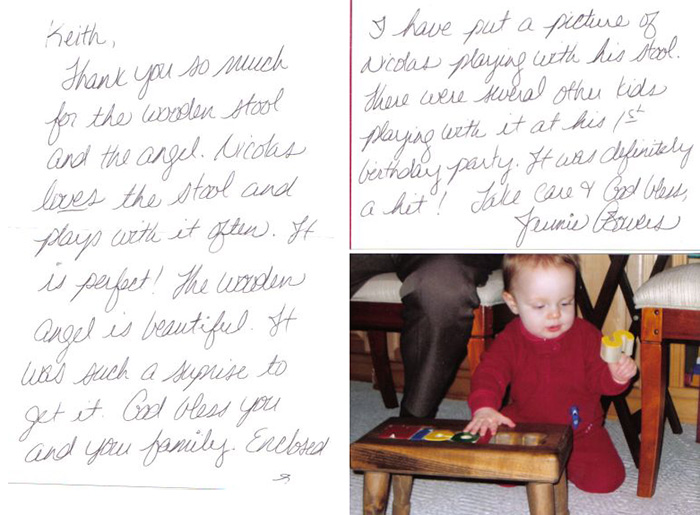 Keith,
Thank you so much
for the wooden stool
and the angel. Nicolas
loves the stool and
plays with it often. It
is perfect! The wooden
angel is beautiful. It
was such a suprise to
get it. God bless you
and your family. Enclosed
I have put a picture of
Nicolas playing with his stool.
There were several other kids
playing with it at his 1st
birthday party. It was definitely
a hit! Take care & God bless,
Jennie